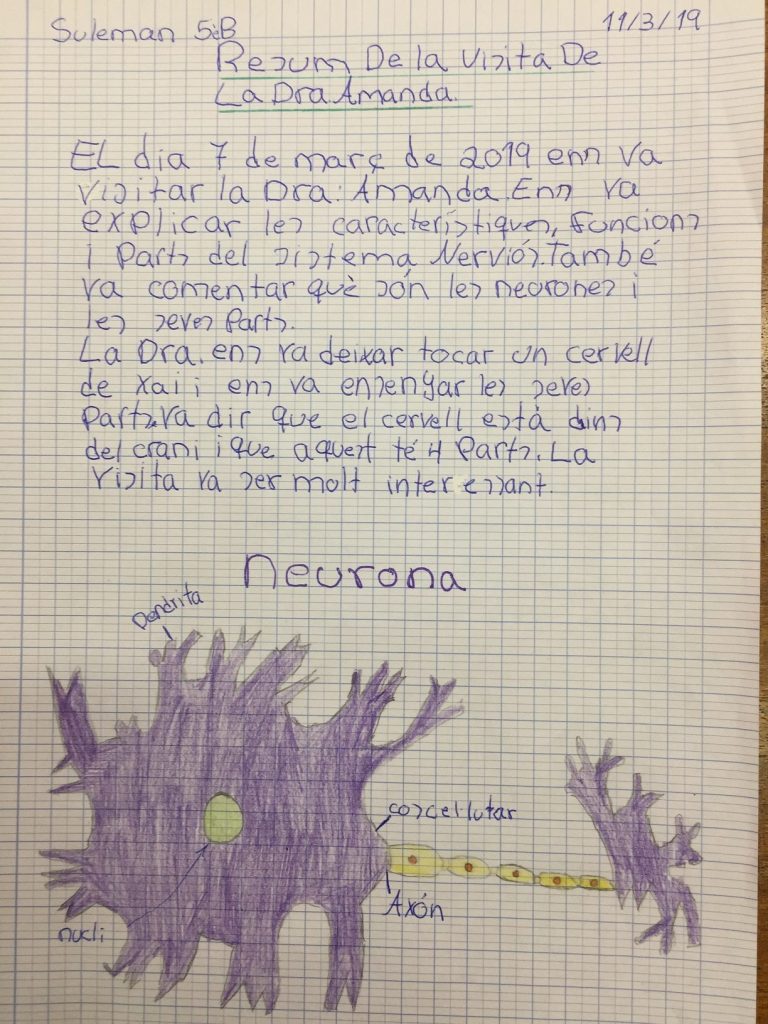 Suleman 5èB
11/3/19
Resum De la Visita De
La Dra Amanda.
EL dia 7 de març de 2019 ens va
visitar la Dra: Amanda. Ens va
explicar les característiques, Funcions
i Parts del sistema Nerviós. També
va comentar què són les neurones i
les seves Parts.
La Dra. ens va deixar tocar un cervell
de xai i ens va ensenyar les seves
Parts. va dir que el cervell està dins
del crani i que aquest té 4 Parts. La
Visita va ser molt interessant.
neurona
Dendrita
coscellutar
Axón
nucli